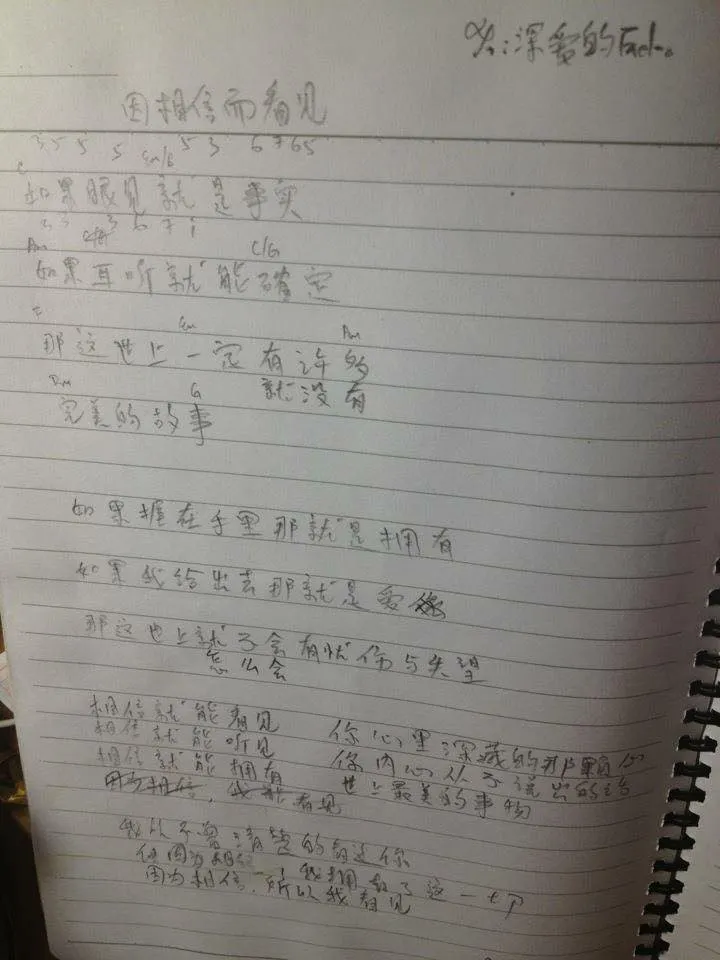 深爱的
因相信而看见
3 5 5 5 Em/B 5 3 6 7 6 5
C
如果眼见就是事实
3 3 3 6 7 i
Am C/G
如果耳听就能確定
F Em Am
那这世上一定有许多
就没有
Dm G
完美的故事
如果握在手里那就是拥有
如果我给出去那就是爱
那这世上就不会有忧伤与失望
怎么会
相信就能看见 你心里深藏的那颗心
相信就能听见 你内心从不说出的话
相信就能拥有 世上最美的事物
因为相信，我能看见
我从不曾清楚的看过你
但因为相信，我拥有了这一切
因为相信，所以我看见